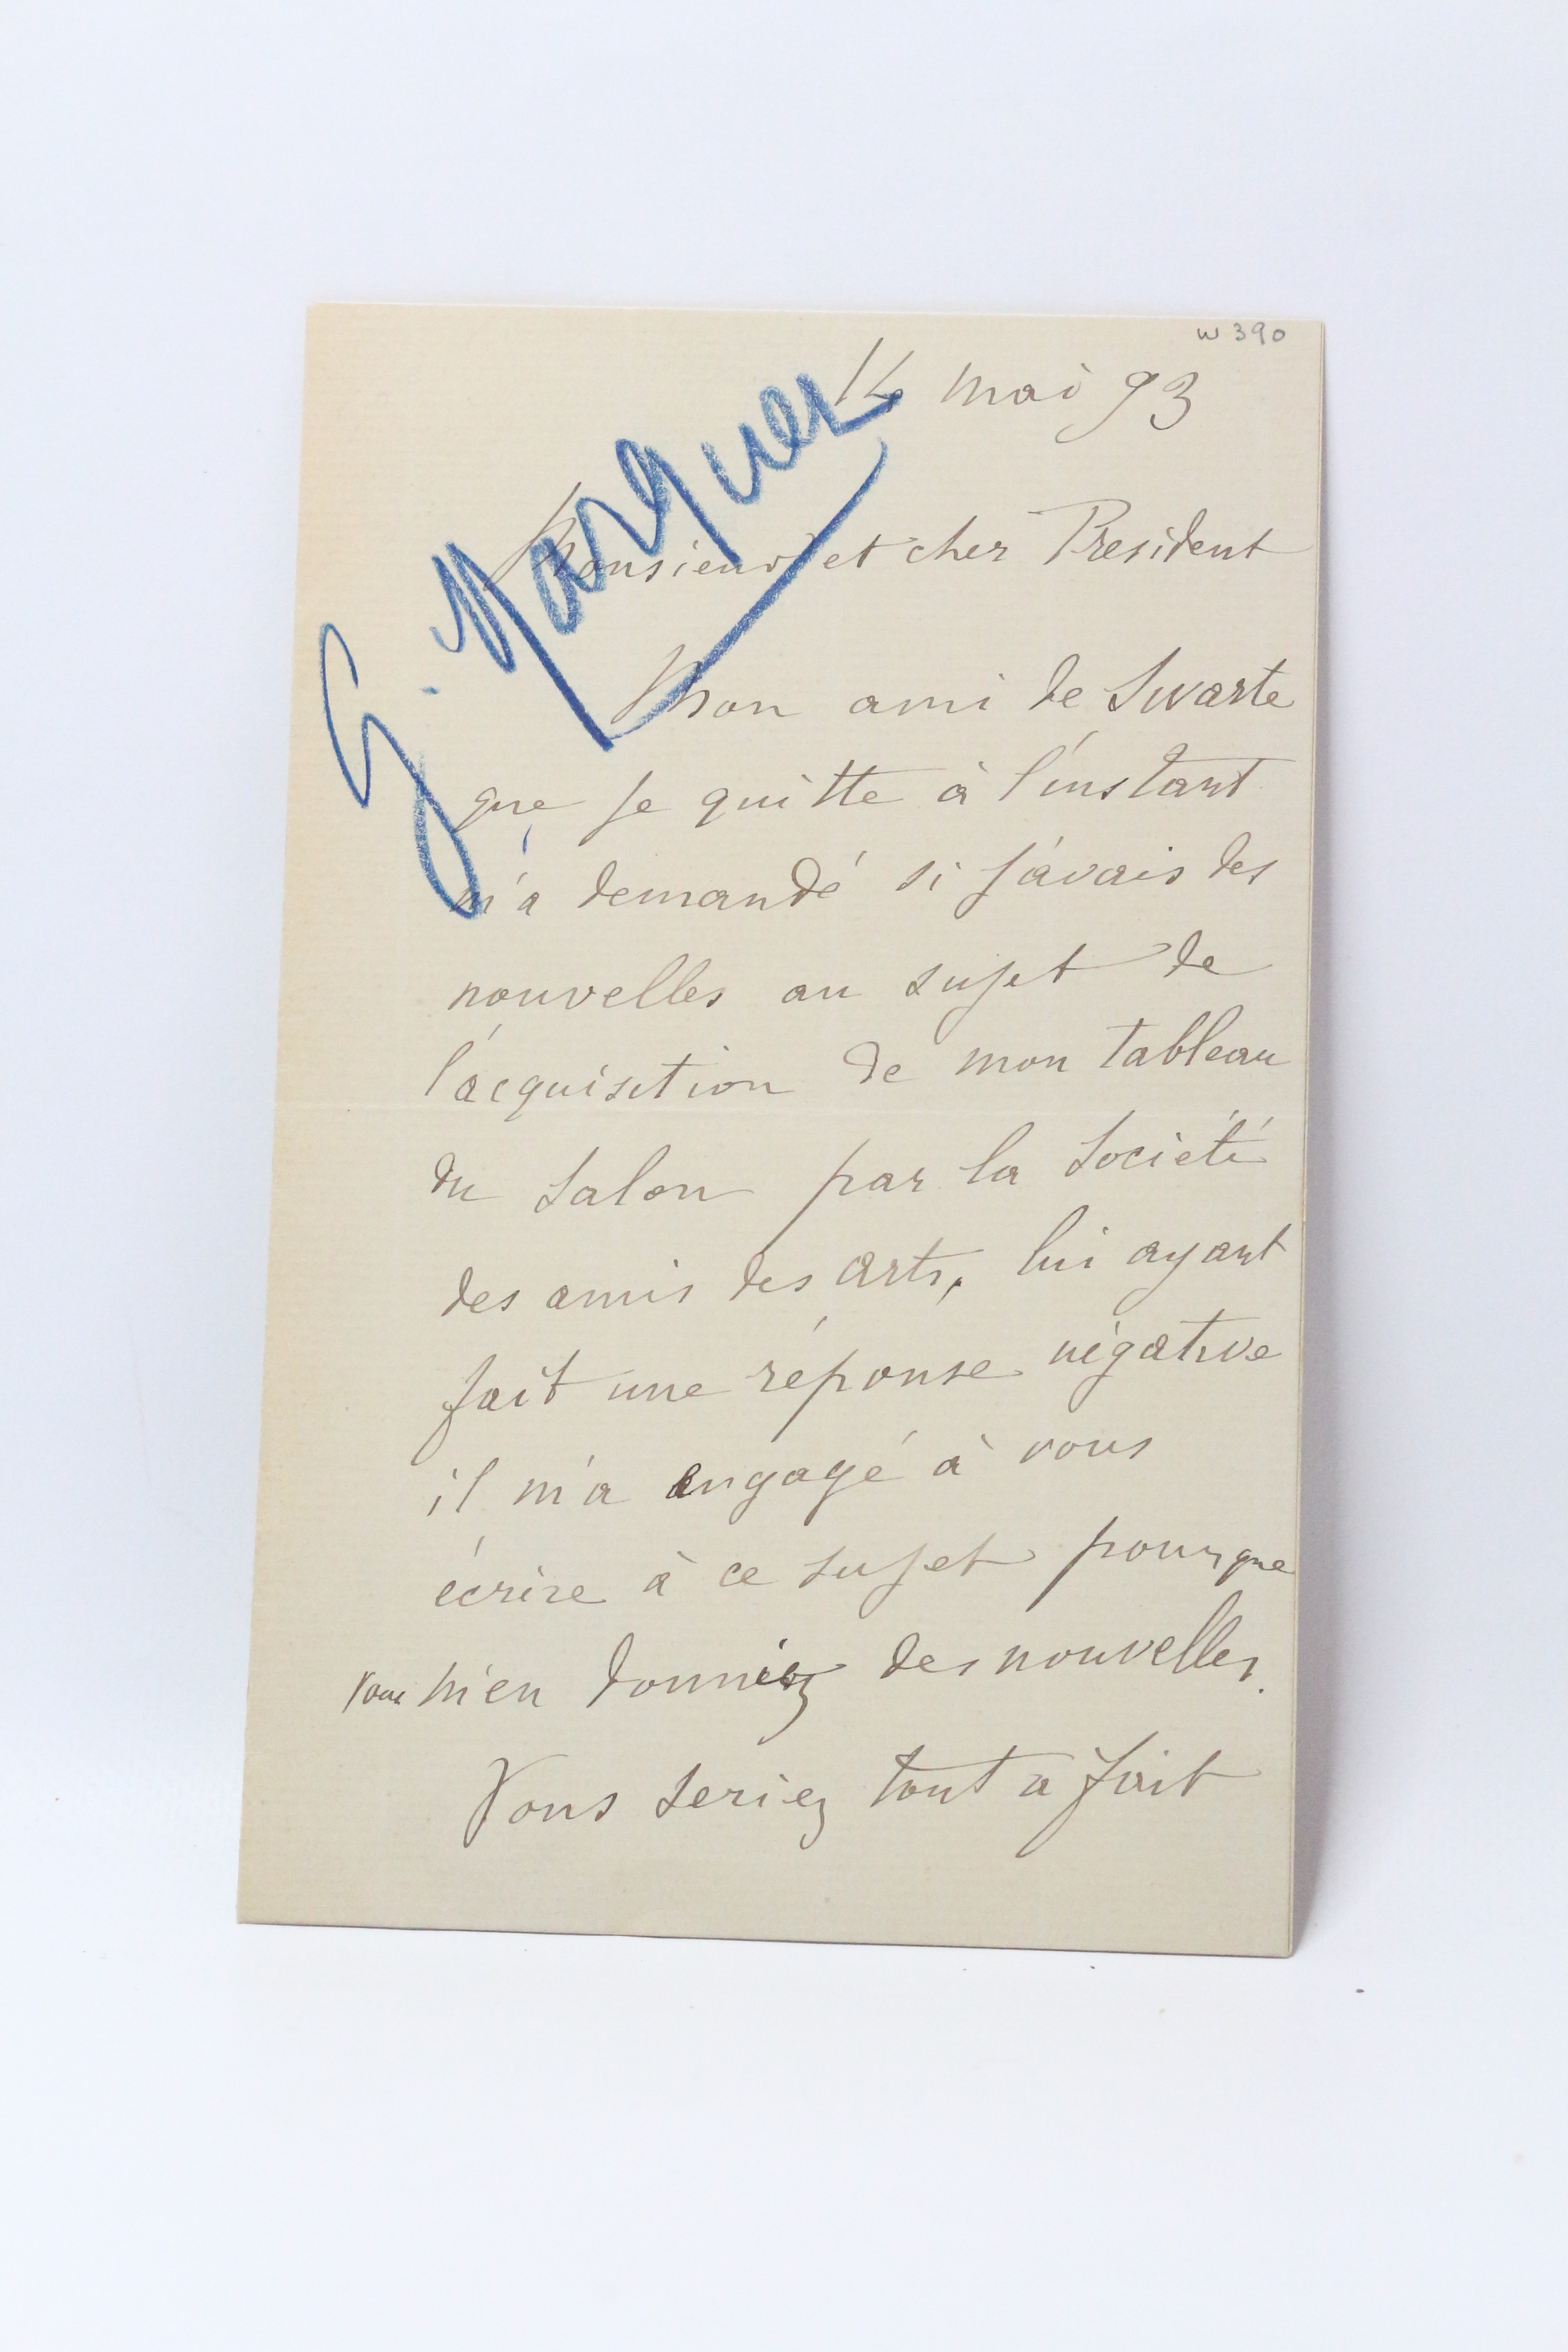 W 390
14 mai 93
G. Marquet
Monsieur et cher President
Mon ami de Swarte
que je quitte à l'instant
m'a demandé si j'avais des
nouvelles au sujet de
l'acquisition de mon tableau
du Salon par la Société
des amis des arts, lui ayant
fait une réponse négative
il m'a engagé à vous
écrire à ce sujet pour que
vous m'en donniez des nouvelles.
Vous seriez tout a fait